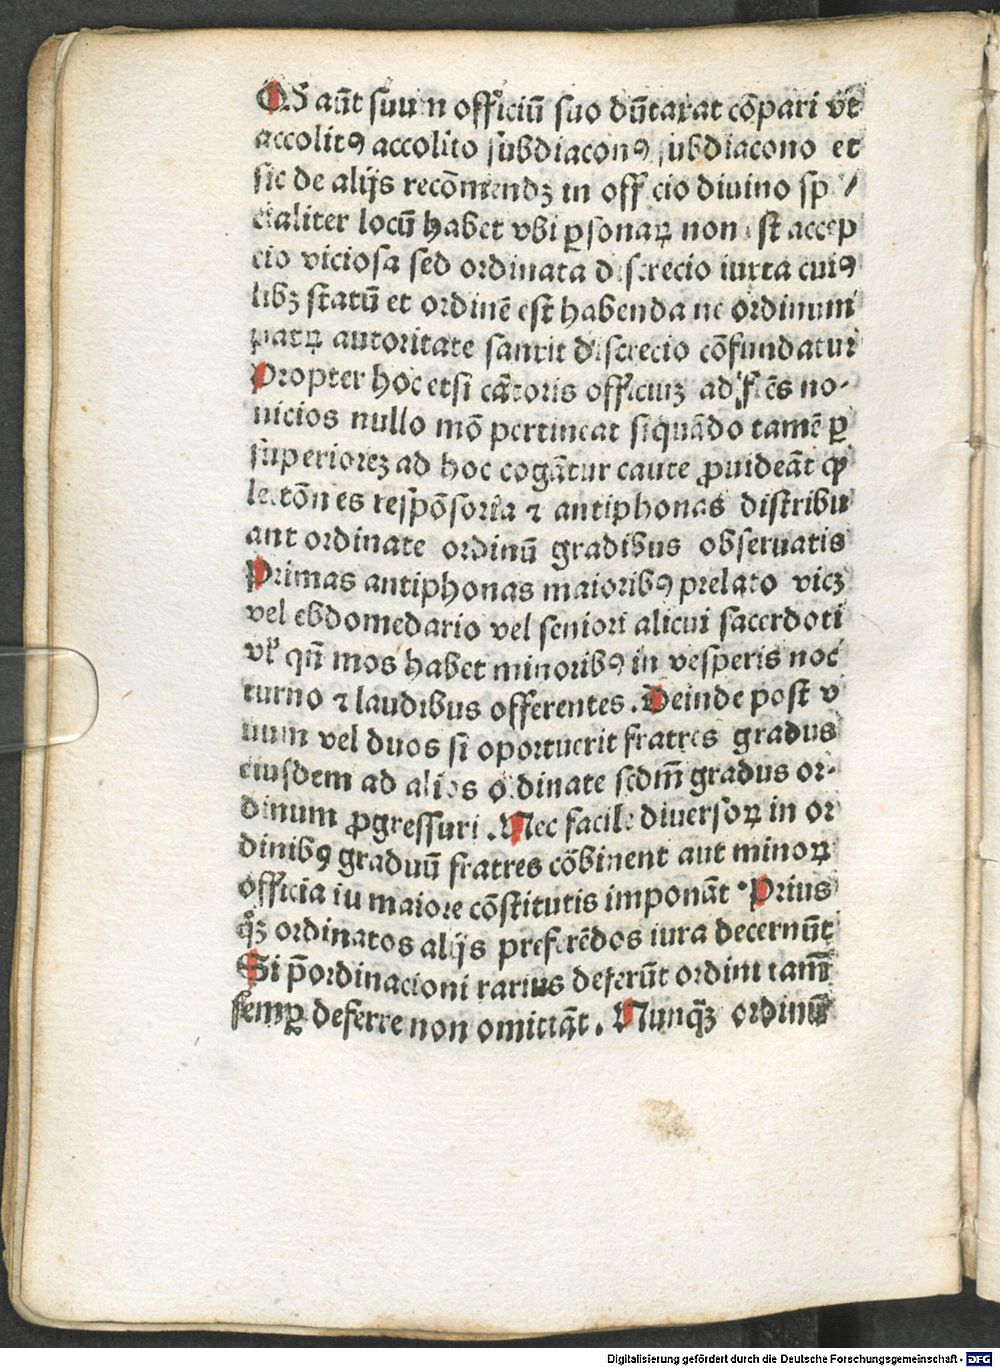 QS aūt suum officiū suo dūtaxat cōpari vt
accolitꝰ accolito subdiaconꝰ subdiacono et
sic de alijs recōmendꝫ in officio diuino sp⸗
cialiter locū habet vbi ꝑsonaꝝ non est accep
cio viciosa sed ordinata discrecio iuxta cuiꝰ
libꝫ statū et ordinē est habenda ne ordinum
patꝝ autoritate sanxit discrecio cōfundatur
Propter hoc etsi cātoris officiuꝫ ad fr̄ēs no-
uicios nullo mō pertineat siquādo tamē ꝑ
superiorez ad hoc cogātur caute ꝓuideāt ꝙ
lectōnes respōsoria ⁊ antiphonas distribu
ant ordinate ordinū gradibus obseruatis
Primas antiphonas maioribꝰ prelato viꝫ
vel ebdomedario vel seniori alicui sacerdoti
vl' qn̄ mos habet minoribꝰ in vesperis noc
turno ⁊ laudibus offerentes . Deinde post v
num vel duos si oportuerit fratres gradus
eiusdem ad alios ordinate scdm̄ gradus or-
dinum ꝓgressuri . Nec facile diuersoꝝ in or
dinibꝰ graduū fratres cōbinent aut minoꝝ
officia iu maiore cōstitutis imponāt . Prius
qꝫ ordinatos alijs preferēdos iura decernūt
Si p̄ordinacioni rarius deferūt ordini tamē
semꝑ deferre non omittāt . Nunqꝫ ordinū
Digitalisierung gefördert durch die Deutsche Forschungsgemeinschaft - DFG